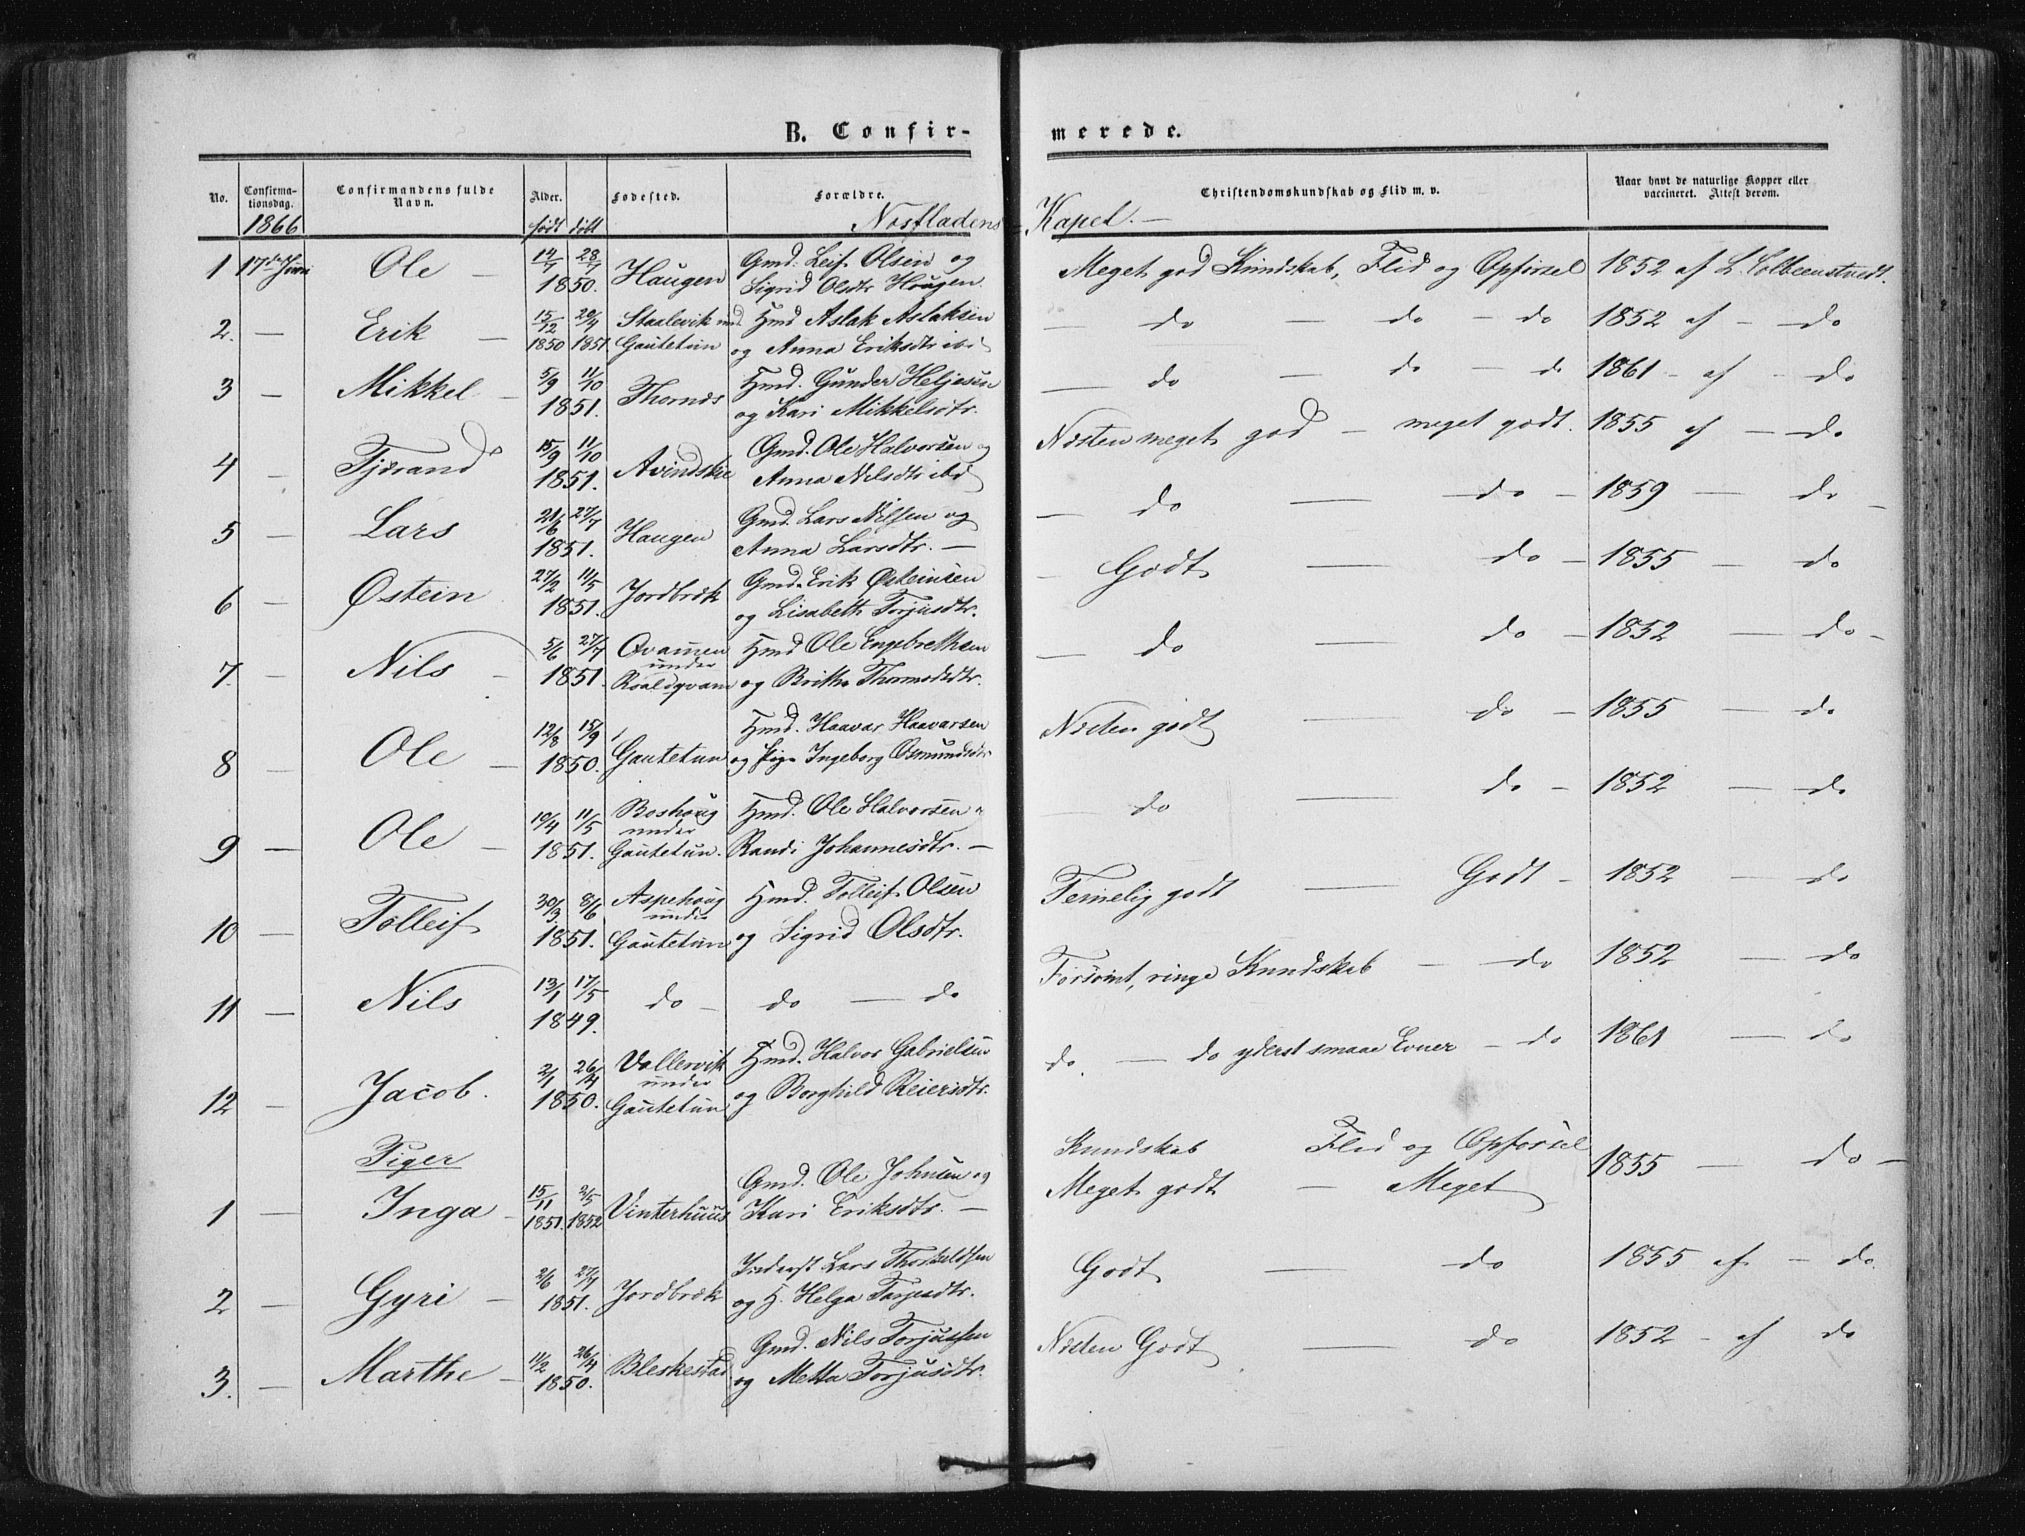 B. Confir-
merede.
No.
Confirma-
tionsdag.
Confirmandens fulde
Navn.
Alder.
Fødested.
Forældre.
Christendomskundskab og Flid m. v.
Naar havt de naturlige Kopper eller
vaccineret. Attest derom.
1866
født døbt
Nesfladens
Kapel. —
1 17de Juni Ole — 14/7 28/7 Haugen Gmd. Leif Olsen og
1850. Sigrid Olsdtr Haugen.
Meget god Kundskab, Flid og Opførsel 1852 af L.
2. — Erik — 15/12 20/4 Staalevik und. Hmd Aslak Aslaksen
1850 1851 Gautetun og Anna Eriksdtr ibd
— do — do — do 1852 af — do
3 — Mikkel — 5/9 11/10 Thornæs Hmd. Gunder Heljesen
1851. og Kari Mikkelsdtr.
— do — do — do 1861 — af — do
4 — Tjærand 15/9 11/10 Avindskie Gmd. Ole Halvorsen og
1851. Anna Nilsdtr ibd
Næsten meget god — meget godt. 1855 af — do
5 — Lars 21/6 27/7 Haugen Gmd. Lars Nilsen og
1851. Anna Larsdtr. —
— do — do — 1859 — do —
6 — Østein 27/2 11/5 Jordbræk Gmd. Erik Østeinsen
1851. og Lisabeth Torjusdtr.
— Godt do — 1855 — do
7. — Nils — 5/6 27/7 Qvamen Hmd Ole Engebrethsen
under
1851. Roaldqvam og Britha Thormodsdtr.
— do — do — 1852 — do —
8 — Ole — 12/8 15/9 Hmd. Haavar Haavarsen
1850. Gautetun og Pige Ingeborg Osmundsdtr
Næsten godt — do — 1855 — do
9 — Ole — 10/4 11/5 Boshoug Hmd. Ole Halvorsen
under
1851. Gautetun. Randi Johannesdtr. —
— do — do — 1852 — do
10 — Tolleif 30/3 8/6 Aspehoug Hmd. Tolleif Olsen
under
1851. Gautetun og Sigrid Olsdtr.
Temelig godt — Godt — 1852 — do
11 — Nils 13/1 17/5 do — do — do
1849.
Forsømt, ringe Kundskab — do 1852 — do
12 — Jacob. 2/1 26/4 Vallervik Hmd. Halvor Gabrielsen
under
1850. Gautetun og Borghild Reiersdtr.
do. — do yderst smaae Evner — do 1861 — do
Piger
Kundskab Flid og Opførsel
1 — Inga — 15/11 2/5 Vinterhuus Gmd. Ole Johnsen og
1851. 1852 Kari Eriksdtr. —
Meget godt — Meget 1855 — do —
2 — Gyri — 2/6 27/7 Jordbræk Inderst Lars Thorkeldsen
1851. og H. Helga Torjusdtr.
Godt — do 1855 af — do.
3. — Marthe — 11/2 26/4 Bleskestad Gmd. Nils Torjussen
1850. og Metta Torjusdtr.
Næsten Godt — do 1852 — af do